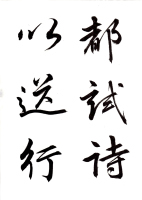 都试诗
以送行